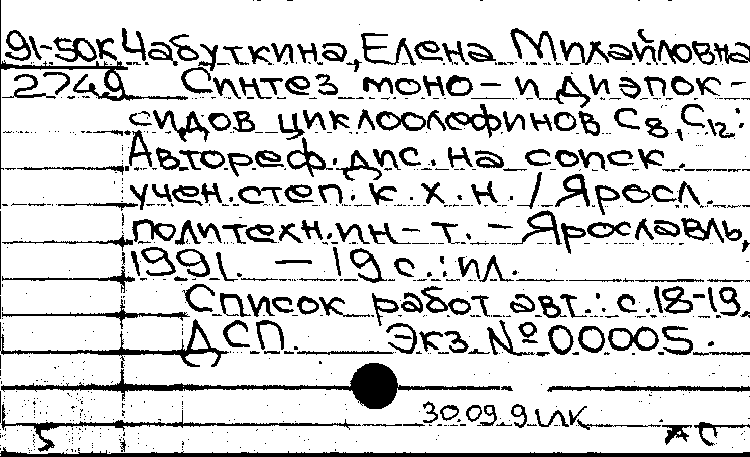 91-50К Чабуткина, Елена Михайловна
2749 Синтез моно- и диэпок-
сидов циклоолефинов C8, C12:
Автореф. дис. на соиск.
учен. степ. к. х. н. / Яросл.
политехн. ин-т. - Ярославль,
1991. - 19 с.: ил.
Список работ авт.: с. 18-19.
ДСП. Экз. № 00005.
30.09.91 ИК
5 АС